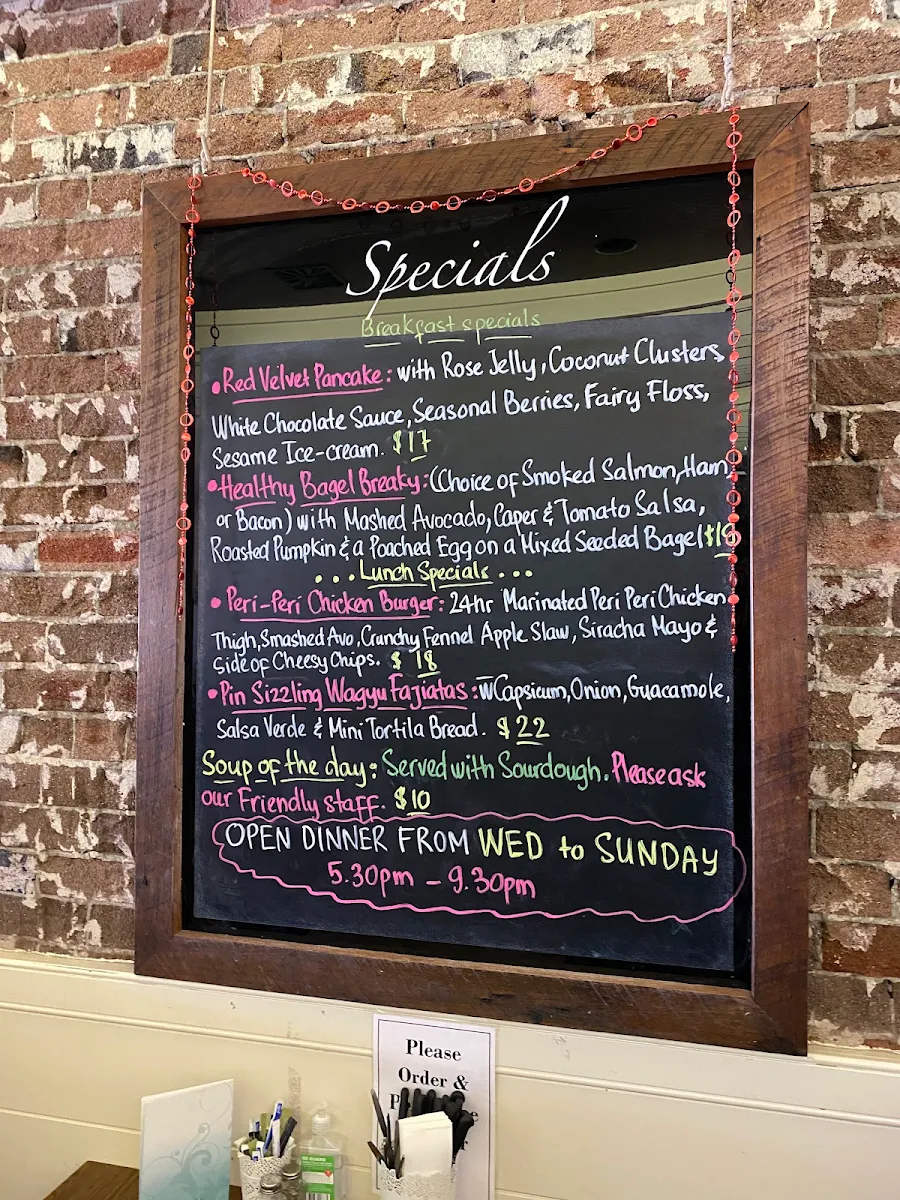 Specials
Breakfast specials
• Red Velvet Pancake: with Rose Jelly, Coconut Clusters
White Chocolate Sauce, Seasonal Berries, Fairy Floss,
Sesame Ice-cream. $17
• Healthy Bagel Breaky: (Choice of Smoked Salmon, Ham,
or Bacon) with Mashed Avocado, Caper & Tomato Salsa,
Roasted Pumpkin & a Poached Egg on a Mixed Seeded Bagel
... Lunch Specials ...
• Peri-Peri Chicken Burger: 24hr Marinated Peri Peri Chicken
Thigh, Smashed Avo, Crunchy Fennel Apple Slaw, Siracha Mayo &
Side of Cheesy Chips. $18
• Pin Sizzling Wagyu Fajiatas: W Capsicum, Onion, Guacamole,
Salsa Verde & Mini Tortila Bread. $22
Soup of the day: Served with Sourdough. Please ask
our Friendly staff. $10
OPEN DINNER FROM WED to SUNDAY
5.30pm - 9.30pm
Please
Order &